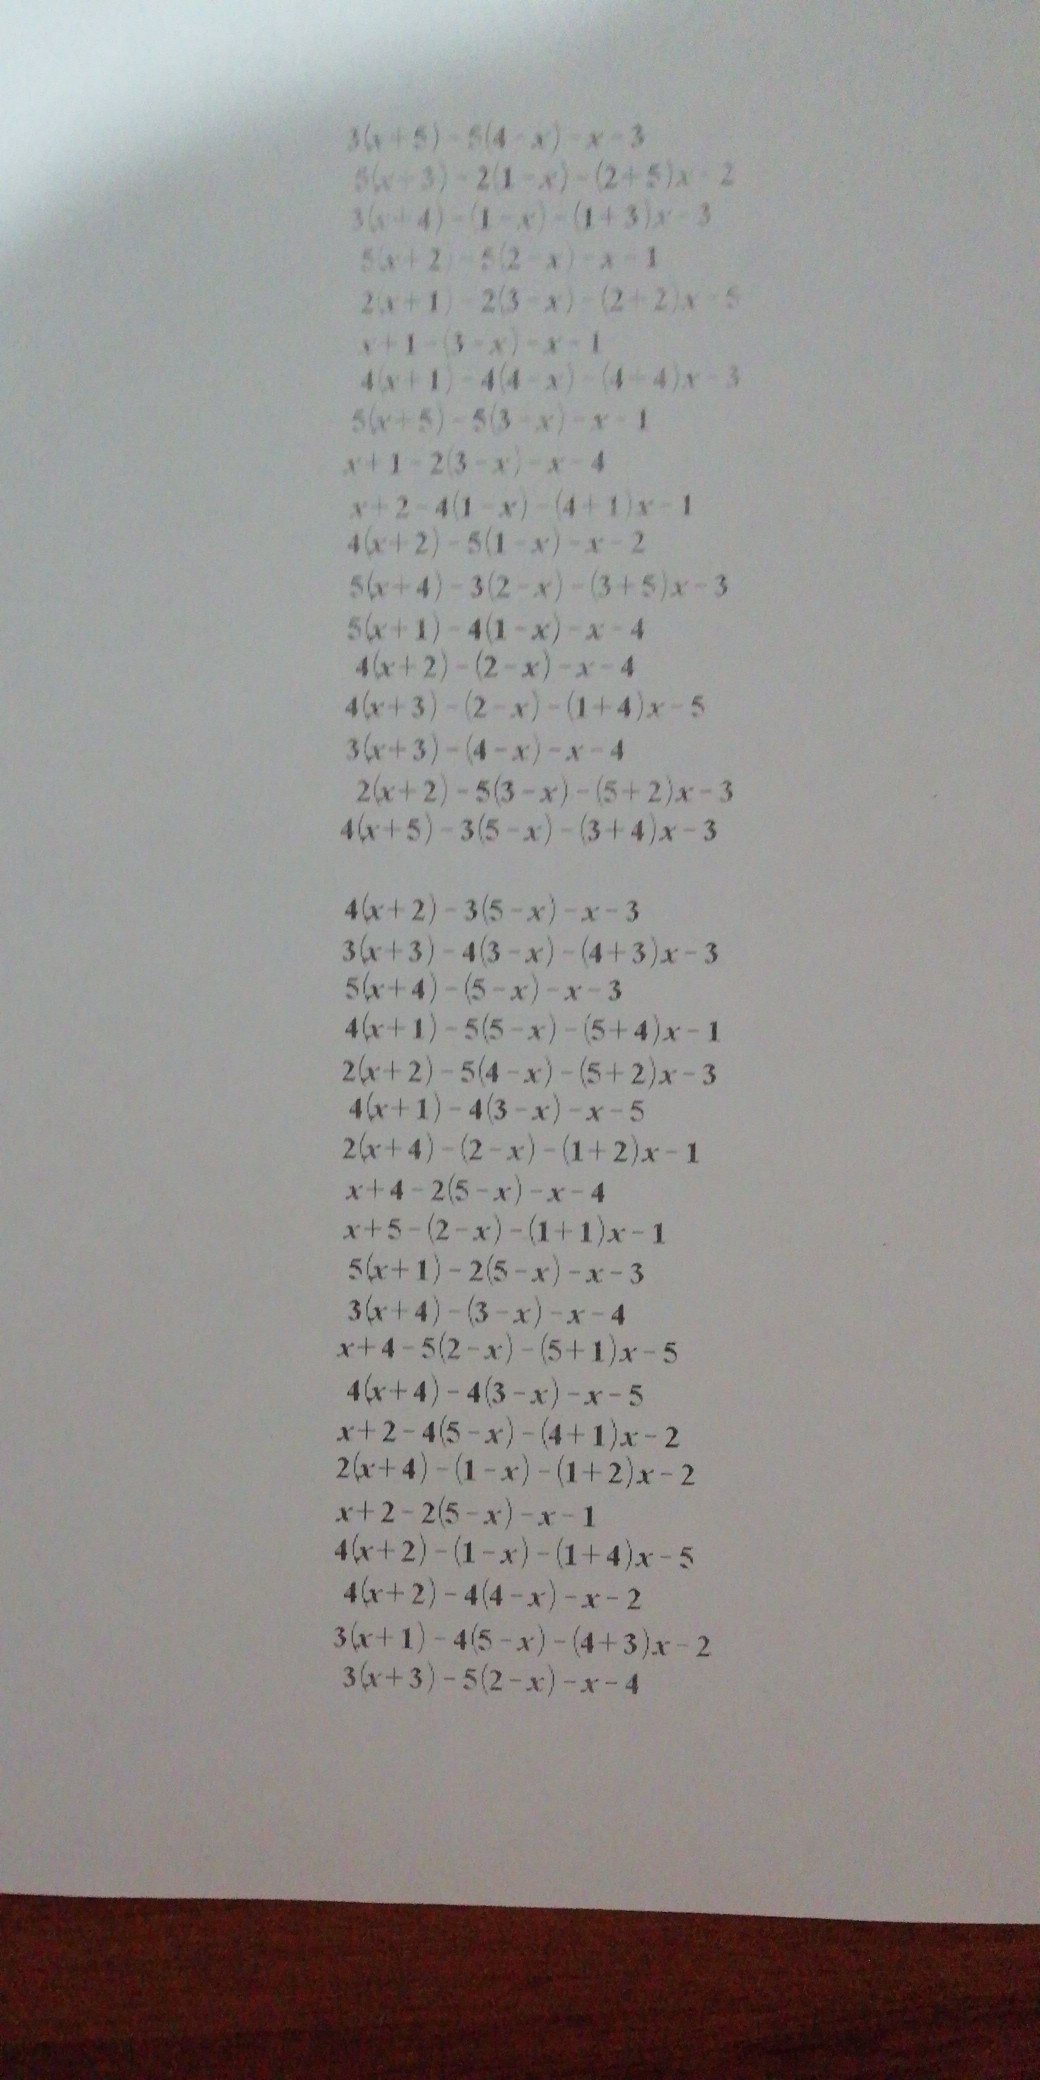 3(x+5)-5(4-x)-x-3
5(x+3)-2(1-x)-(2+5)x-2
3(x+4)-(1-x)-(1+3)x-3
5(x+2)-5(2-x)-x-1
2(x+1)-2(3-x)-(2+2)x-5
x+1-(3-x)-x-1
4(x+1)-4(4-x)-(4+4)x-3
5(x+5)-5(3-x)-x-1
x+1-2(3-x)-x-4
x+2-4(1-x)-(4+1)x-1
4(x+2)-5(1-x)-x-2
5(x+4)-3(2-x)-(3+5)x-3
5(x+1)-4(1-x)-x-4
4(x+2)-(2-x)-x-4
4(x+3)-(2-x)-(1+4)x-5
3(x+3)-(4-x)-x-4
2(x+2)-5(3-x)-(5+2)x-3
4(x+5)-3(5-x)-(3+4)x-3
4(x+2)-3(5-x)-x-3
3(x+3)-4(3-x)-(4+3)x-3
5(x+4)-(5-x)-x-3
4(x+1)-5(5-x)-(5+4)x-1
2(x+2)-5(4-x)-(5+2)x-3
4(x+1)-4(3-x)-x-5
2(x+4)-(2-x)-(1+2)x-1
x+4-2(5-x)-x-4
x+5-(2-x)-(1+1)x-1
5(x+1)-2(5-x)-x-3
3(x+4)-(3-x)-x-4
x+4-5(2-x)-(5+1)x-5
4(x+4)-4(3-x)-x-5
x+2-4(5-x)-(4+1)x-2
2(x+4)-(1-x)-(1+2)x-2
x+2-2(5-x)-x-1
4(x+2)-(1-x)-(1+4)x-5
4(x+2)-4(4-x)-x-2
3(x+1)-4(5-x)-(4+3)x-2
3(x+3)-5(2-x)-x-4